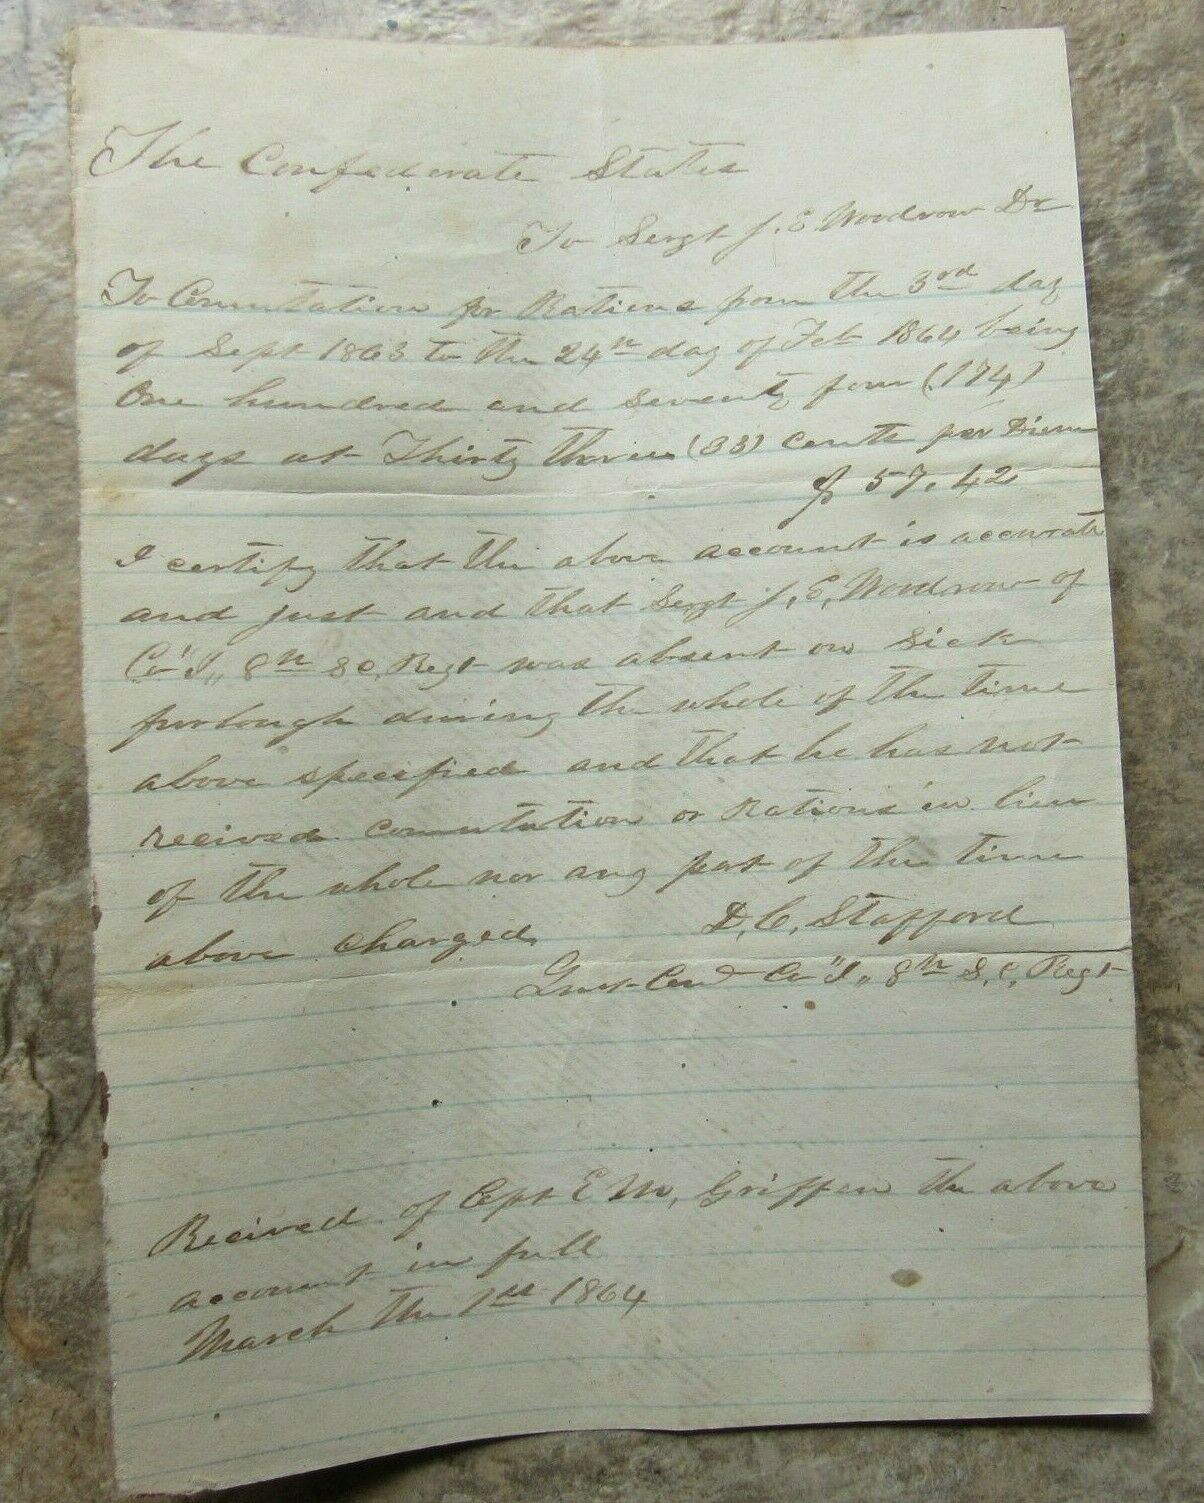 The Confederate States
To Sergt J. E Woodrow Dr
To Comutation for Rations from the 3rd day
of Sept 1863 to the 24th day of Feb 1864 being
One hundred and seventy four (174)
days at Thirty three (33) cents per Diem
$ 57.42
I certify that the above account is accurate
and just and that Sergt J. E. Woodrow of
Co "I" 8th S C. Regt was absent on sick
furlough during the whole of the time
above specified and that he has not
recived comutation or Rations in lieu
of the whole nor any part of the time
above charged.
D. C. Stafford
Co "I" 8th S. C. Regt
Recived of Cpt E M. Griffin the above
account in full
March the 1st 1864